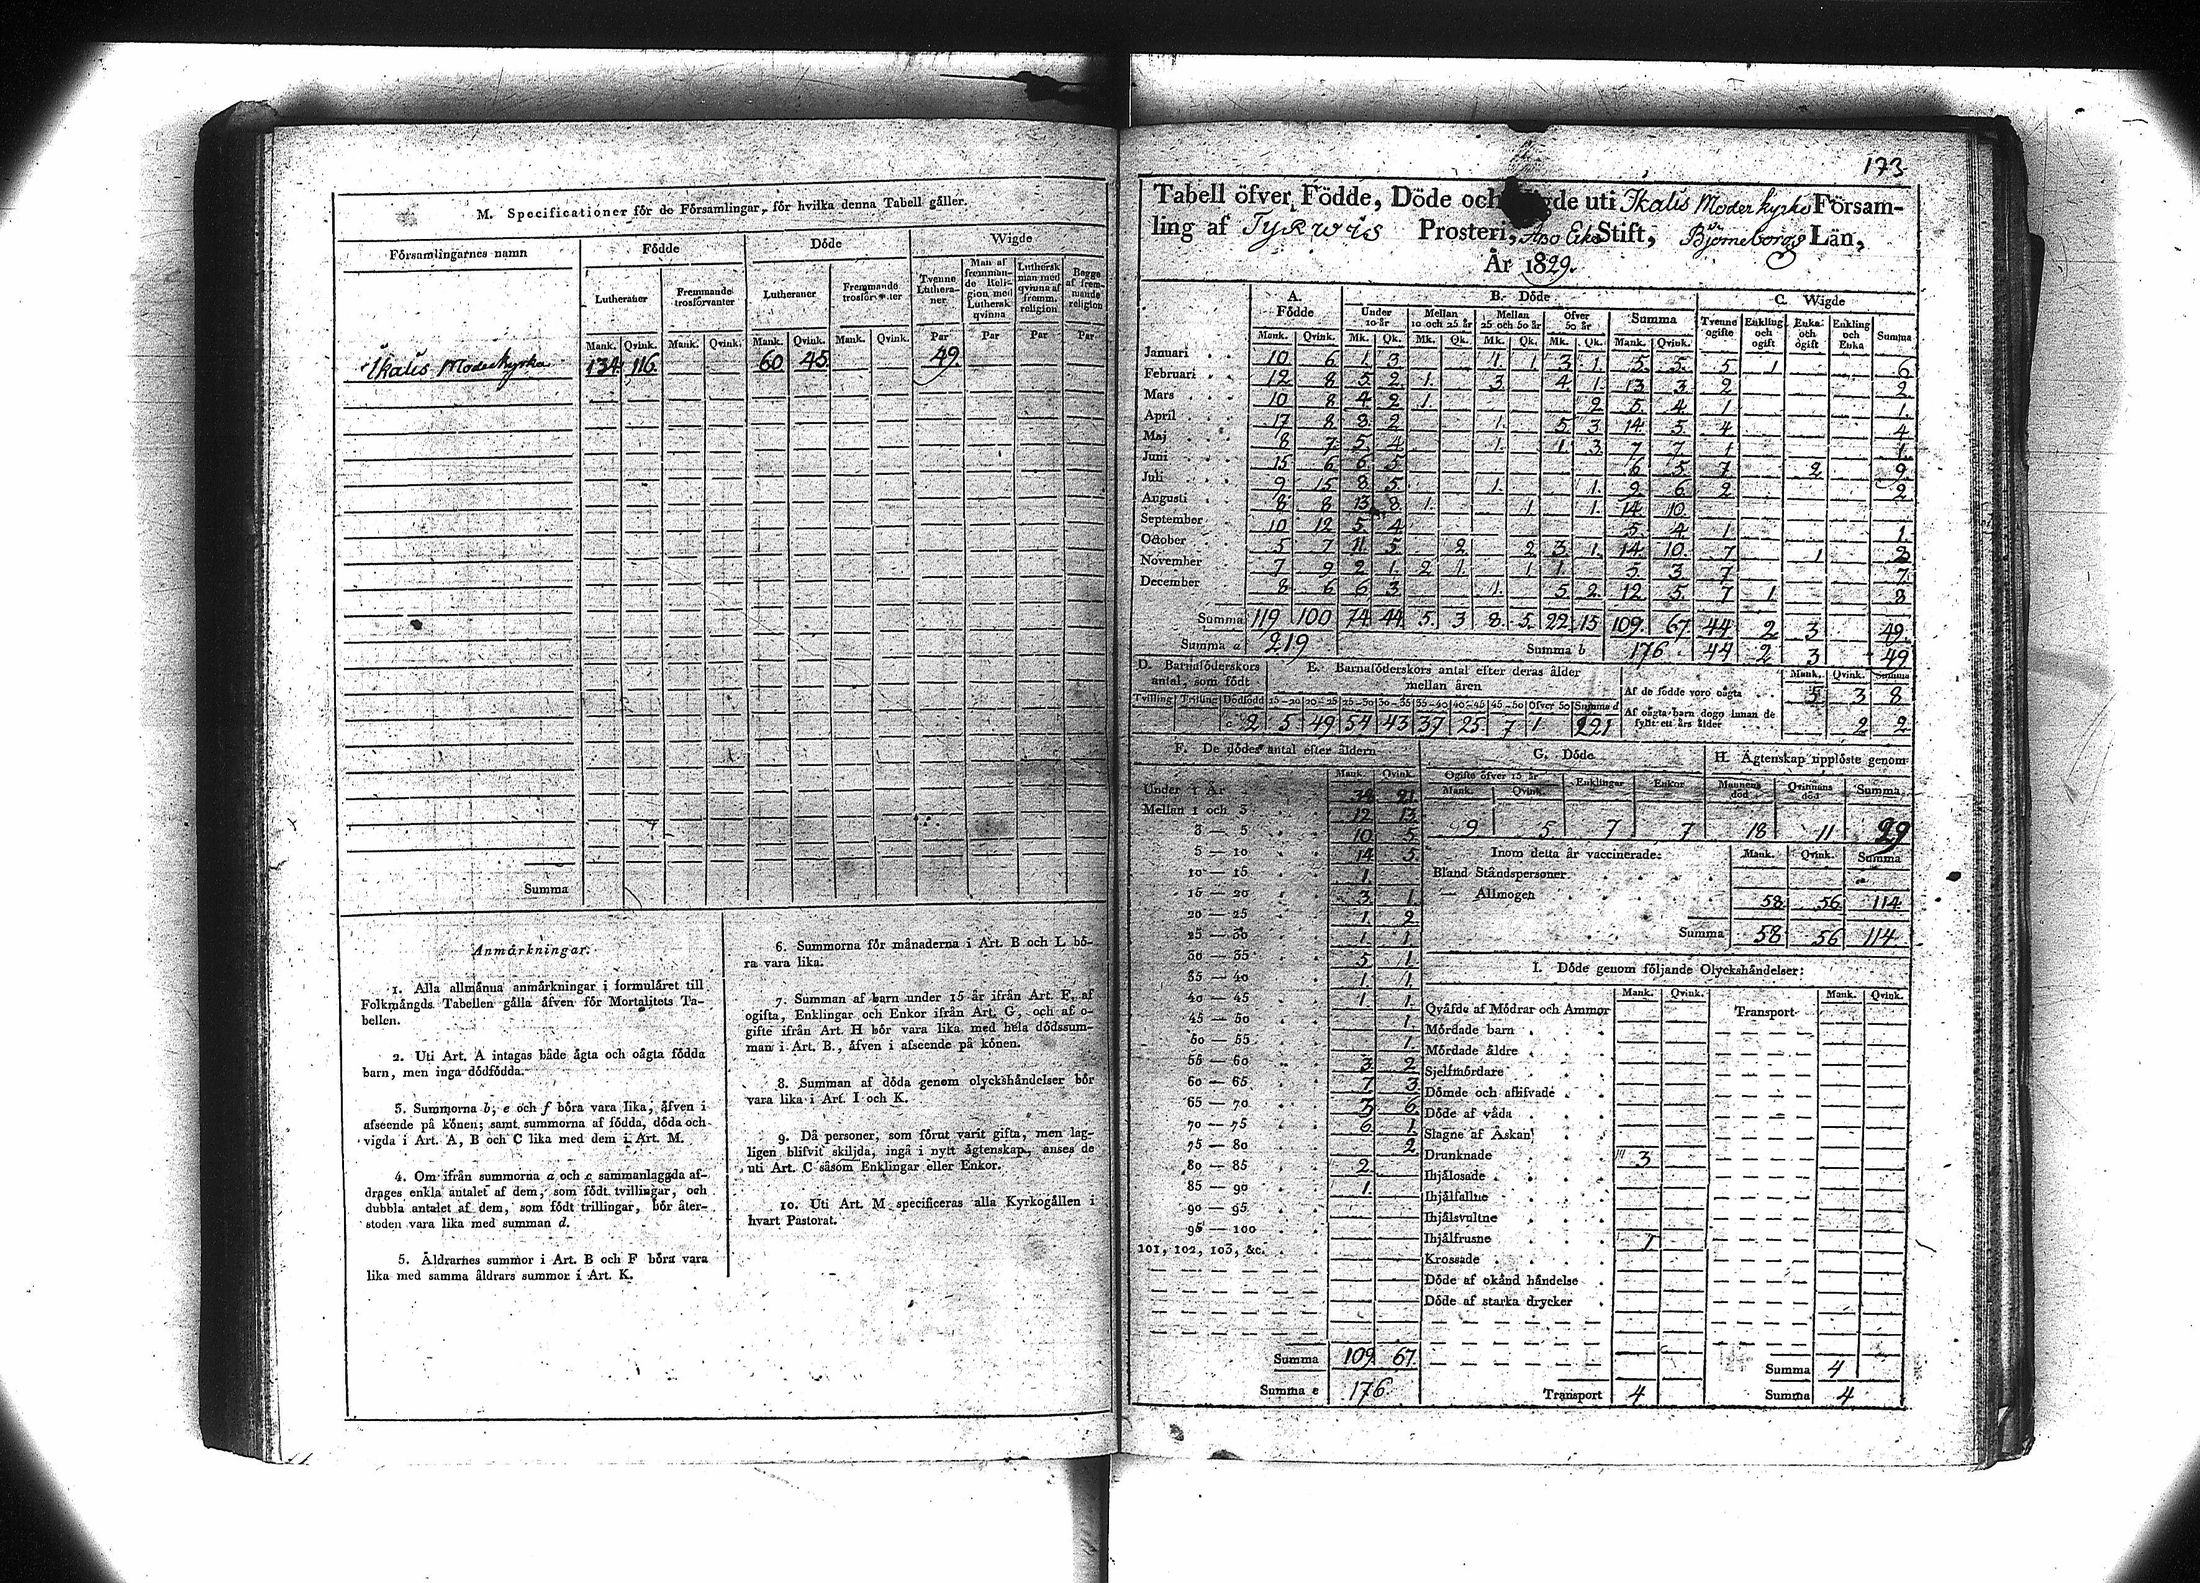 M. Specificationer för de Församlingar, för hvilka denna Tabell gäller.
Församlingarnes namn | Födde | Döde | Wigde
Lutheraner | Fremmande trosförvanter | Lutheraner | Fremmande trosförvanter | Tvenne Lutheraner. | Man af fremmande Religion med Luthersk qvinna | Luthersk man med qvinna af fremm. religion | Begge af fremmande religion
Mank. Qvink. Mank. Qvink. Mank. Qvink. Mank. Qvink. Par Par Par Par
Ikalis Moderkyrka 134 116. 60 45. 49.
Summa
Anmärkningar.
1. Alla allmänna anmärkningar i formuläret till
Folkmängds Tabellen gälla äfven för Mortalitets Ta-
bellen.
2. Uti Art. A intagas både ägta och oägta födda
barn, men inga dödfödda.
3. Summorna b, e och f böra vara lika, äfven i
afseende på könen; samt summorna af födda, döda och
vigda i Art. A, B och C lika med dem i Art. M.
4. Om ifrån summorna a och c sammanlaggda af-
drages enkla antalet af dem, som födt tvillingar, och
dubbla antalet af dem, som födt trillingar, bör åter-
stoden vara lika med summan d.
5. Åldrarnes summor i Art. B och F böra vara
lika med samma åldrars summor i Art. K.
6. Summorna för månaderna i Art. B och L bö-
ra vara lika.
7. Summan af barn under 15 år ifrån Art. F, af
ogifta, Enklingar och Enkor ifrån Art. G, och af o-
gifte ifrån Art. H bör vara lika med hela dödssum-
man i Art. B., äfven i afseende på könen.
8. Summan af döda genom olyckshändelser bör
vara lika i Art. I och K.
9. Då personer, som förut varit gifta, men lag-
ligen blifvit skiljda, ingå i nytt ägtenskap, anses de
uti Art. C såsom Enklingar eller Enkor.
10. Uti Art. M specificeras alla Kyrkogällen i
hvart Pastorat.
173
Tabell öfver Födde, Döde och uti Ikalis Moder kyrko Församling
ling af Tyrwis Prosteri, Stift, Björneborgs Län,
År 1829.
A. Födde | B. Döde | C. Wigde
Under 10 år | Mellan 10 och 25 år | Mellan 25 och 50 år | Öfver 50 år | Summa | Tvenne ogifte | Enkling och ogift | Enka och ogift | Enkling och Enka | Summa
Mank. Qvink. Mk. Qk. Mk. Qk. Mk. Qk. Mk. Qk. Mank. Qvink.
Januari 10 6 1. 3 1. 1 3 1. 5 5. 5 1 6
Februari 12 8 5 2. 1. 3 4 1. 13 3. 2 2.
Mars 10 8 4 2 1. 2 5. 4. 1 1.
April 17 8 8 2 1. 5 3 14. 5 4 4
Maj 8 7 5 4 1. 1 3 7 7. 1 1.
Juni 15 6 6 5 6 5. 7 2 9
Juli 9 15 8 5. 1. 1. 9 6 2 2
Augusti 8 8 13 8 1. 1 1. 14 10.
September 10 12 5 4 5 4. 1 1.
October 5 7 11. 5. 2 2 3 1. 14 10. 7 1
November 7 9 2 1. 2 1. 1 1. 5. 3 7 7.
December 8 6 6 3 1. 5 2. 12 5. 7 1 8
Summa 119 100 74 44 5. 3 8. 5. 22 15 109 67 44 2 3 49.
Summa a 219 Summa b 176. 44 2 3 49
D. Barnaföderskors antal, som födt
Tvilling Trilling Dödfödd
c 2
E. Barnaföderskors antal efter deras ålder mellan åren
15-20 20-25 25-30 30-35 35-40 40-45 45-50 Öfver 50 Summa d
5 49 54 43 37 25 7 1 221
Mank. Qvink. Summa
Af de födde voro oägta 5 3 8
Af oägta barn dogo innan de fyllt ett års ålder 2 2
F. De dödes antal efter åldern
Mank. Qvink.
Under 1 År 38 21
Mellan 1 och 3 12 13
3 — 5 10 5
5 — 10 14 5
10 — 15 1.
15 — 20 3 1.
20 — 25 1. 2
25 — 30 1. 1.
30 — 35 5 1.
35 — 40 1. 1.
40 — 45 1 1.
45 — 50 1.
50 — 55 1.
55 — 60 3 2
60 — 65 7 3
65 — 70 3 6
70 — 75 6 1.
75 — 80 2
80 — 85 2
85 — 90 1.
90 — 95
95 — 100
101, 102, 103, &c.
Summa 109 67
Summa e 176.
G. Döde
Ogifte öfver 15 år | Enklingar | Enkor
Mank. Qvink.
9 5 7 7
H. Ägtenskap upplöste genom
Mannens död | Qvinnans död | Summa
18 11 29
Inom detta år vaccinerade: Mank. Qvink. Summa
Bland Ståndspersoner
— Allmogen 58 56 114.
Summa 58 56 114.
I. Döde genom följande Olyckshändelser:
Mank. Qvink. Mank. Qvink.
Qväfde af Mödrar och Ammor Transport
Mördade barn
Mördade äldre
Sjelfmördare
Dömde och aflifvade
Döde af våda
Slagne af Åskan
Drunknade 3
Ihjälosade
Ihjälfallne
Ihjälsvultne
Ihjälfrusne 1
Krossade
Döde af okänd händelse
Döde af starka drycker
Summa 4
Transport 4 Summa 4